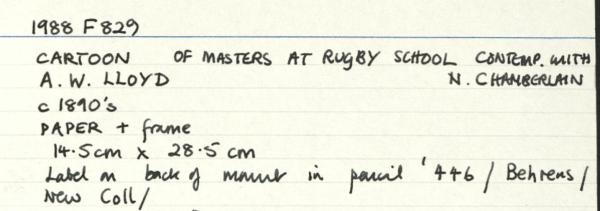 1988 F 829
CARTOON OF MASTERS AT RUGBY SCHOOL CONTEMP. WITH
A. W. LLOYD N. CHAMBERLAIN
c 1890's
PAPER + frame
14.5cm x 28.5 cm
Label on back of mount in pencil '446 / Behrens /
New Coll/